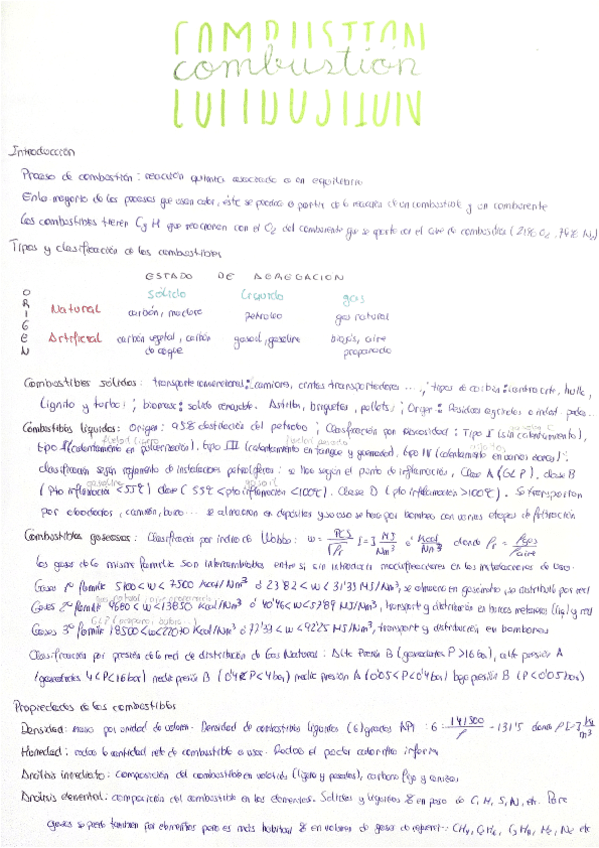 COMBUSTION
combustión
Introducción
Proceso de combustión: reacción química
En la mayoría de los procesos que usan calor, éste se produce a partir de la mezcla de un combustible y un comburente
Los combustibles tienen C y H que reaccionan con el O2 del comburente que se aporta con el aire de combustión (21% O2, 79% N2)
Tipos y clasificación de los combustibles
ESTADO DE AGREGACION
ORIGEN
sólido líquido gas
Natural carbón, madera petroleo gas natural
Artificial carbón vegetal, carbón de coque gasoil, gasolina biogás, aire propanado
Combustibles sólidos: transporte convencional: camiones, cintas transportadoras ...; tipos de carbón: antracita, hulla,
lignito y turba; biomasa: solido renovable. Astillas, briquetas, pellets; Origen: Residuos agrícolas o indust.
Combustibles líquidos: Origen: 95% destilación del petroleo; Clasificación por viscosidad: Tipo I (sin calentamiento),
tipo II (calentamiento en pulverización), tipo III (calentamiento en tanque y quemador), tipo IV (calentamiento en varias etapas);
clasificación según reglamento de instalaciones petrolíferas: se hace según el punto de inflamación, Clase A (GLP), clase B
(pto inflamación <55ºC) clase C (55ºC < pto inflamación <100ºC), Clase D (pto inflamación >100ºC). Se transportan
por oleoductos, camión, barco... se almacena en depósitos y su uso se hace por bombeo con varias etapas de filtración
Combustibles gaseosos: Clasificación por índice de Wobbe: w = PCS/√ρr [=] MJ/Nm³ ó kcal/Nm³ donde ρr = ρgas/ρaire
Los gases de la misma familia son intercambiables entre si, sin introducir modificaciones en las instalaciones de uso.
Gases 1ª familia 5700 < w < 7500 Kcal/Nm³ ó 23'82 < w < 31'33 MJ/Nm³, se almacena en gasómetro, se distribuye por red
gas natural, aire propanado
Gases 2ª familia 9680 < w < 13850 Kcal/Nm³ ó 40'46 < w < 57'89 MJ/Nm³, transporte y distribución en barcos metaneros (liq) y red
GLP (propano, butano...)
Gases 3ª familia 18500 < w < 22070 Kcal/Nm³ ó 77'33 < w < 92'25 MJ/Nm³, transporte y distribución en bombonas
Clasificación por presión de la red de distribución de Gas Natural: Alta Presión B (gasoductos P > 16 bar), alta presión A
(gasoductos 4 < P < 16 bar) media presión B (0'4 < P < 4 bar) media presión A (0'05 < P < 0'4 bar) baja presión B (P < 0'05 bar)
Propiedades de los combustibles
Densidad: masa por unidad de volumen. Densidad de combustibles líquidos (G) grados API: G = 141500/ρ - 131'5 donde ρ [=] kg/m³
Humedad: reduce la cantidad neta de combustible a usar. Reduce el poder calorífico inferior
Análisis inmediato: composición del combustible en volátiles (ligeros y pesados), carbono fijo y cenizas
Análisis elemental: composición del combustible en los elementos. Sólidos y líquidos % en peso de C, H, S, N, etc. Para
gases se puede también por elementos pero es más habitual % en volumen de gases CH4, C2H6, C3H8, H2, N2 etc